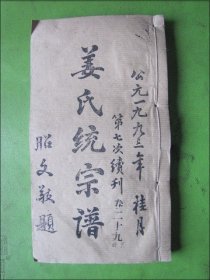 公元一九九三年 桂月
第七次續刊 卷二十九
姜氏統宗譜
昭文敬題